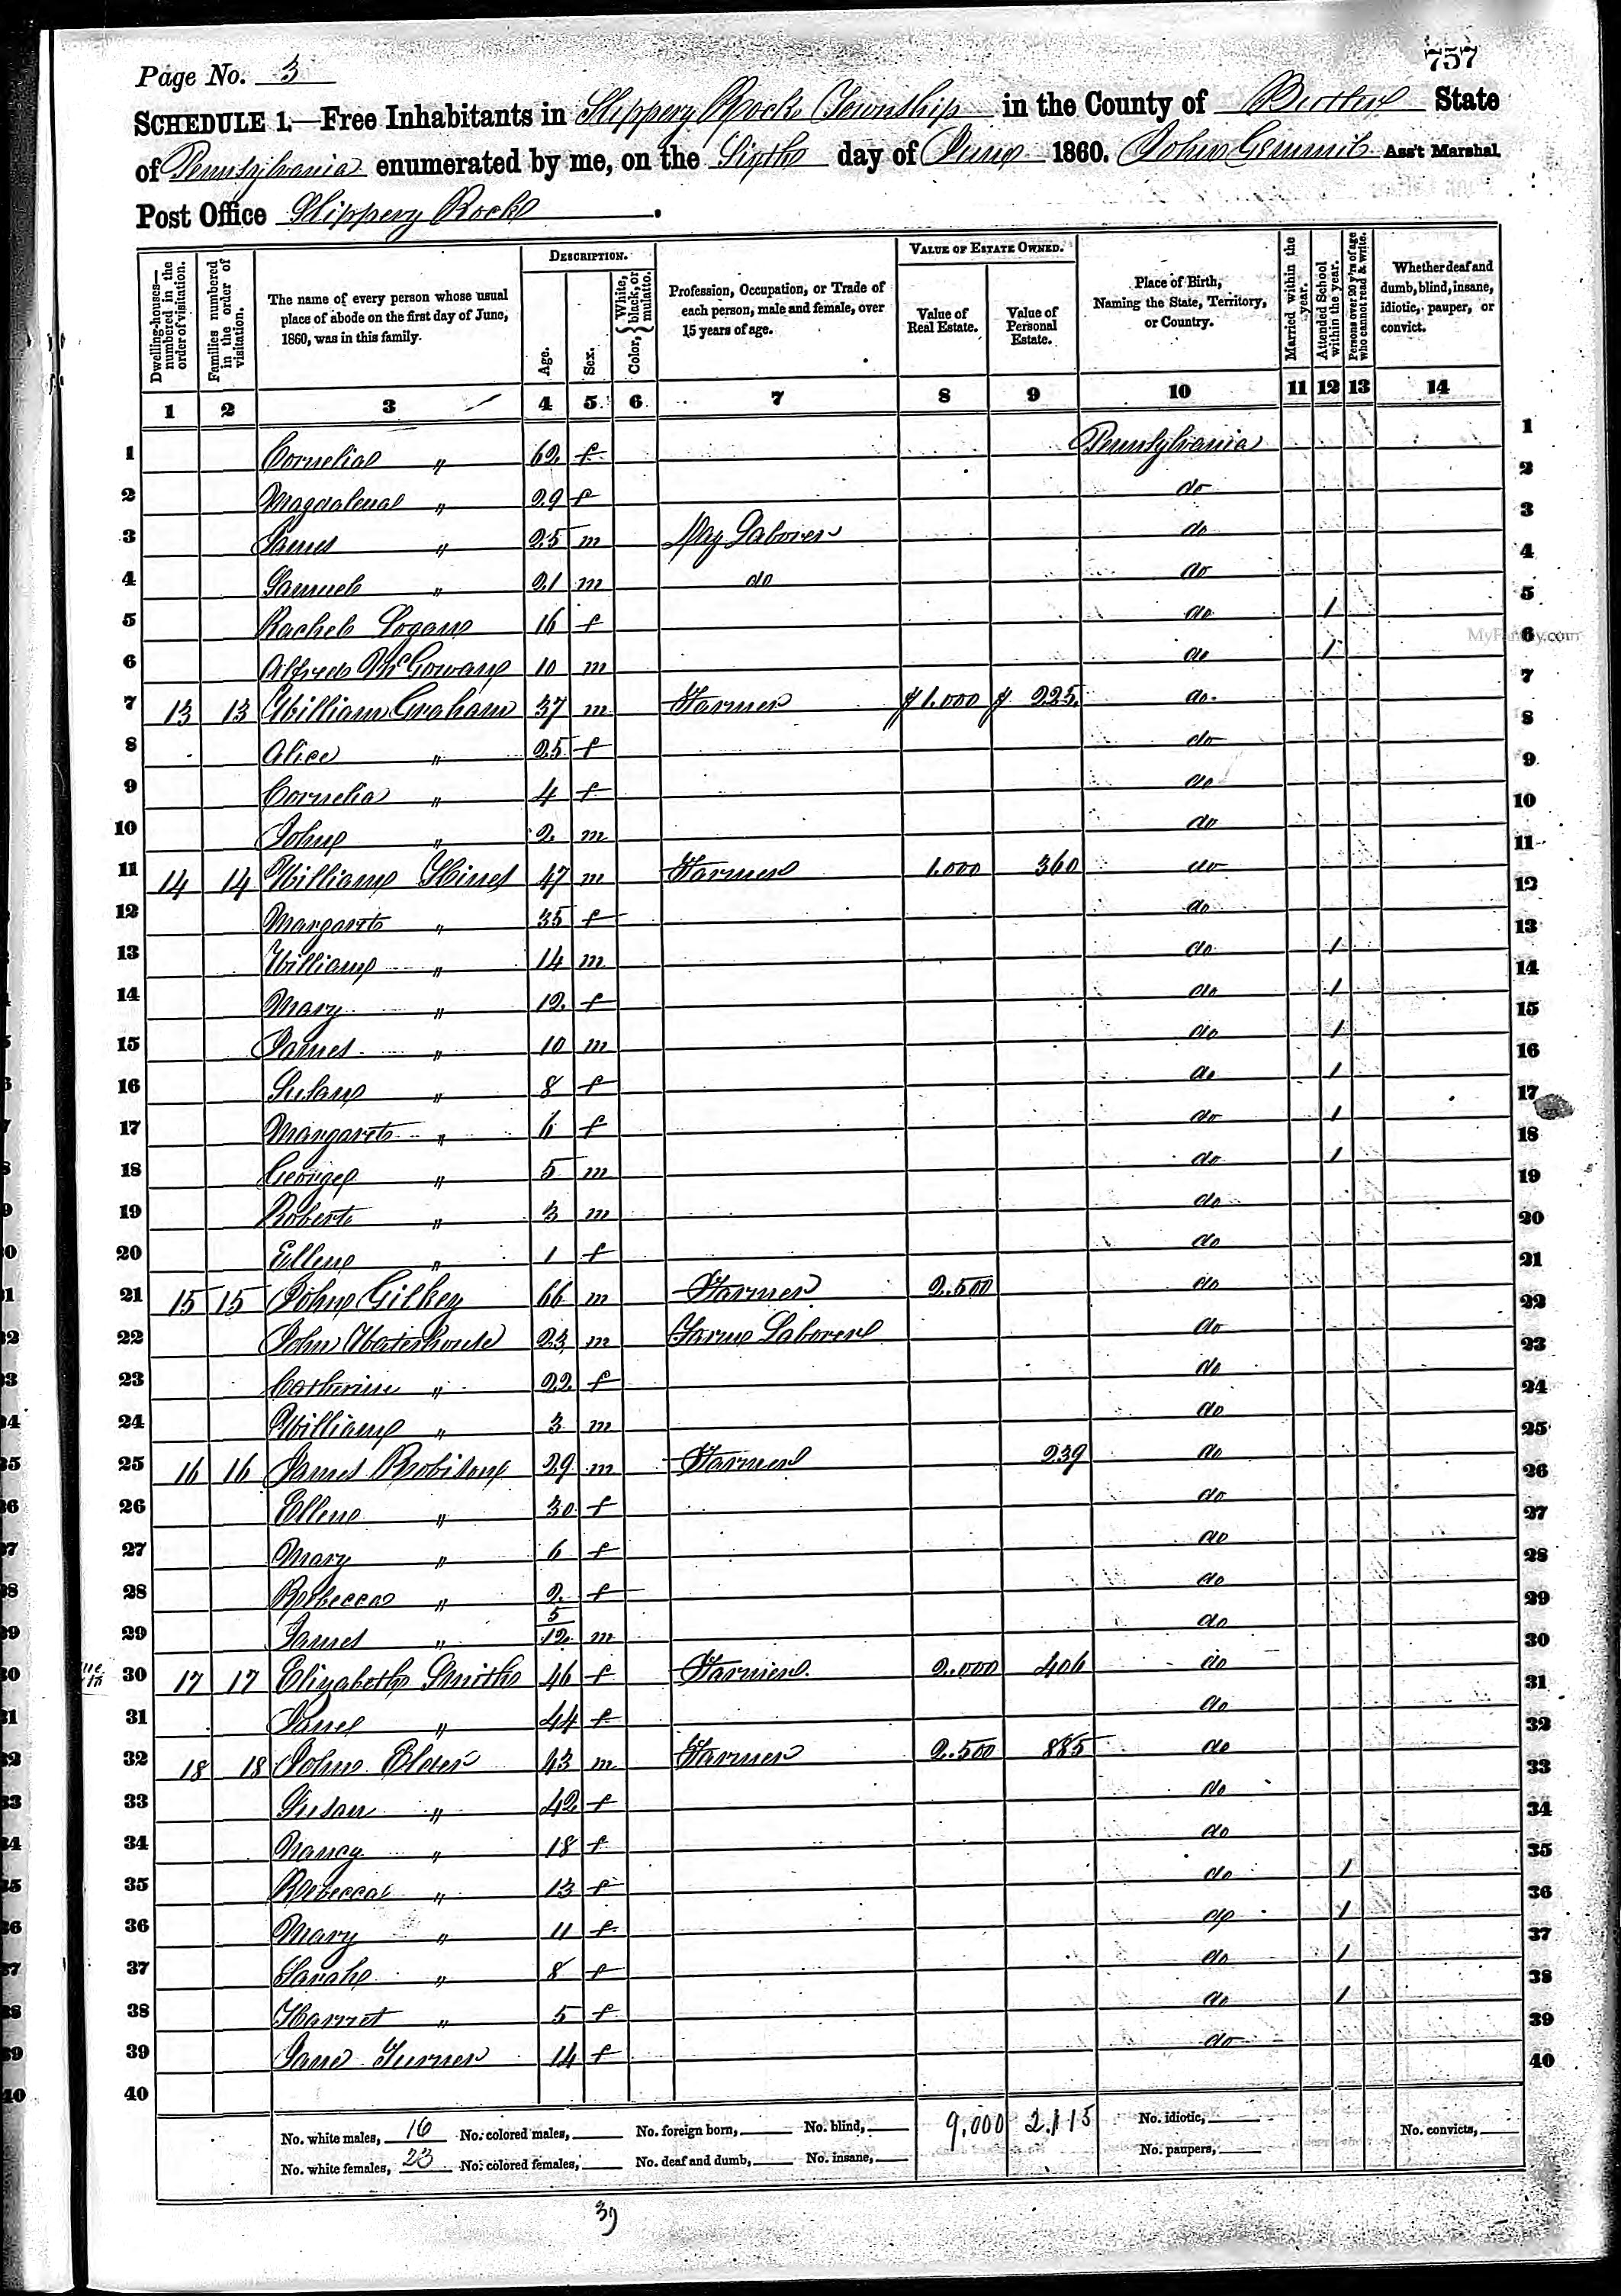 757
Page No. 3
SCHEDULE 1.—Free Inhabitants in Slippery Rock Township in the County of Butler State
of Pennsylvania enumerated by me, on the Sixth day of June 1860. John Gemmil Ass't Marshal
Post Office Slippery Rock.
Dwelling-houses—numbered in the order of visitation. Families numbered in the order of visitation. The name of every person whose usual place of abode on the first day of June, 1860, was in this family. DESCRIPTION. Age. Sex. Color, White, black, or mulatto. Profession, Occupation, or Trade of each person, male and female, over 15 years of age. VALUE OF ESTATE OWNED. Value of Real Estate. Value of Personal Estate. Place of Birth, Naming the State, Territory, or Country. Married within the year. Attended School within the year. Persons over 20 y'rs of age who cannot read & write. Whether deaf and dumb, blind, insane, idiotic, pauper, or convict.
1 2 3 4 5 6 7 8 9 10 11 12 13 14
1 Cornelia " 62 f Pennsylvania 1
2 Magdalena " 29 f do 2
3 James " 25 m Day Laborer do 3
4 Samuel " 21 m do do 4
5 Rachel Logan 16 f do 1 5
6 Alfred McGowan 10 m do 1 6
MyFamily.com
7 13 13 William Graham 37 m Farmer $1.000 $225 do 7
8 Alice " 25 f do 8
9 Cornelia " 4 f do 9
10 John " 2 m do 10
11 14 14 William Hines 47 m Farmer 1.000 360 do 11
12 Margaret " 35 f do 12
13 William " 14 m do 1 13
14 Mary " 12 f do 1 14
15 James " 10 m do 1 15
16 Susan " 8 f do 1 16
17 Margaret " 6 f do 1 17
18 George " 5 m do 1 18
19 Robert " 3 m do 19
20 Ellen " 1 f do 20
21 15 15 John Gilkey 66 m Farmer 2.500 do 21
22 John Waterhouse 23 m Farm Laborer do 22
23 Catherine " 22 f do 23
24 William " 3 m do 24
25 16 16 James Robison 29 m Farmer 239 do 25
26 Ellen " 30 f do 26
27 Mary " 6 f do 27
28 Rebecca " 2 f do 28
29 James " 5/12 m do 29
30 17 17 Elizabeth Smith 46 f Farmer 2.000 406 do 30
31 Jane " 44 f do 31
32 18 18 John Elder 43 m Farmer 2.500 885 do 32
33 Susan " 42 f do 33
34 Nancy " 18 f do 34
35 Rebecca " 13 f do 1 35
36 Mary " 11 f do 1 36
37 Sarah " 8 f do 1 37
38 Harret " 5 f do 1 38
39 Jane Turner 14 f do 39
40 40
No. white males, 16 No. colored males, No. foreign born, No. blind, 9,000 2,115 No. idiotic, No. convicts,
No. white females, 23 No. colored females, No. deaf and dumb, No. insane, No. paupers,
39